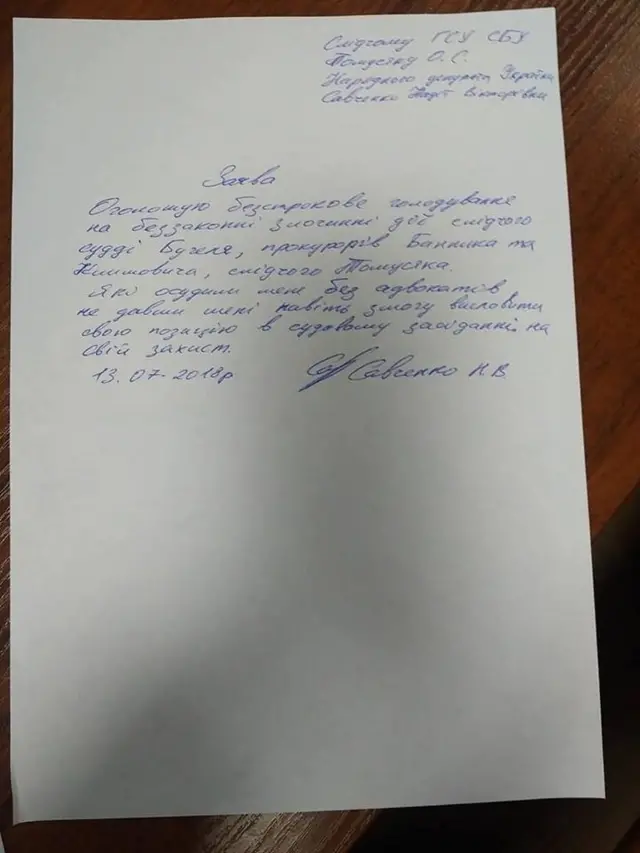 Слідчому ГСУ СБУ
Томусяку О.С.
Народного депутата України
Савченко Надії Вікторівни
Заява
Оголошую безстрокове голодування
на беззаконні злочинні дії слідчого
судді Бугеля, прокурорів Банника та
Климовича, слідчого Томусяка.
Які осудили мене без адвокатів
не давши мені навіть змогу висловити
свою позицію в судовому засіданні на
свій захист.
13.07-2018р Савченко Н.В.